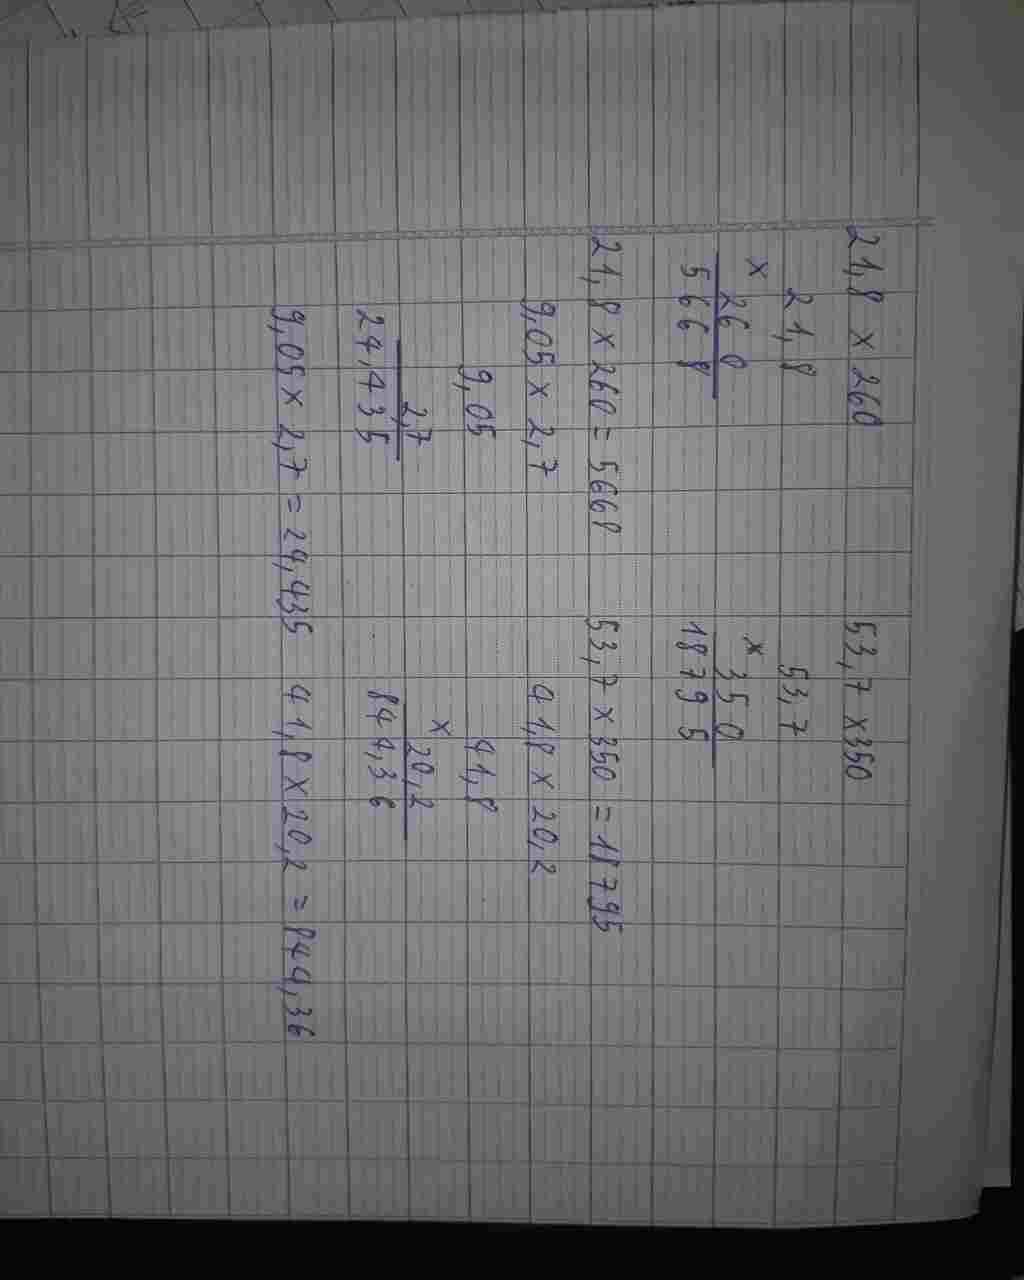 21,8 x 260 53,7 x 350
21,8 53,7
x x
260 350
5668 18795
21,8 x 260 = 5668 53,7 x 350 = 18795
9,05 x 2,7 41,8 x 20,2
9,05 41,8
x
2,7 20,2
24,435 844,36
9,05 x 2,7 = 24,435 41,8 x 20,2 = 844,36